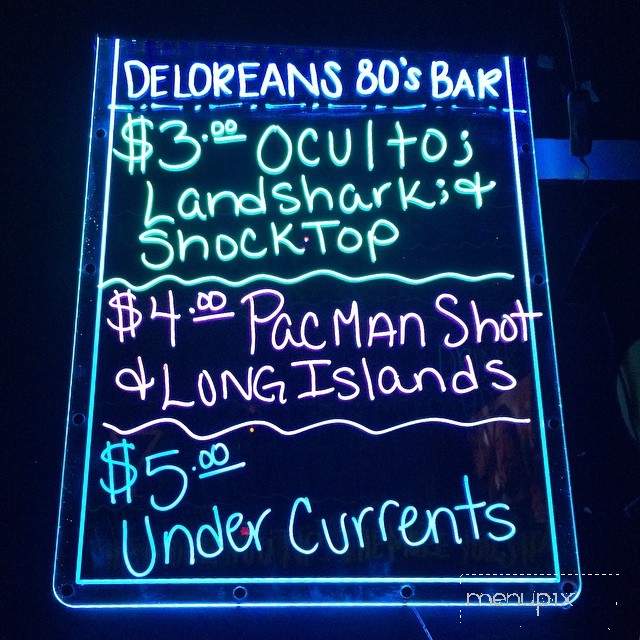 DELOREANS 80's BAR
$3.00 Oculto;
Landshark; &
ShockTop
$4.00 PacMAN Shot
& LONG Islands
$5.00
Under Currents
menupix